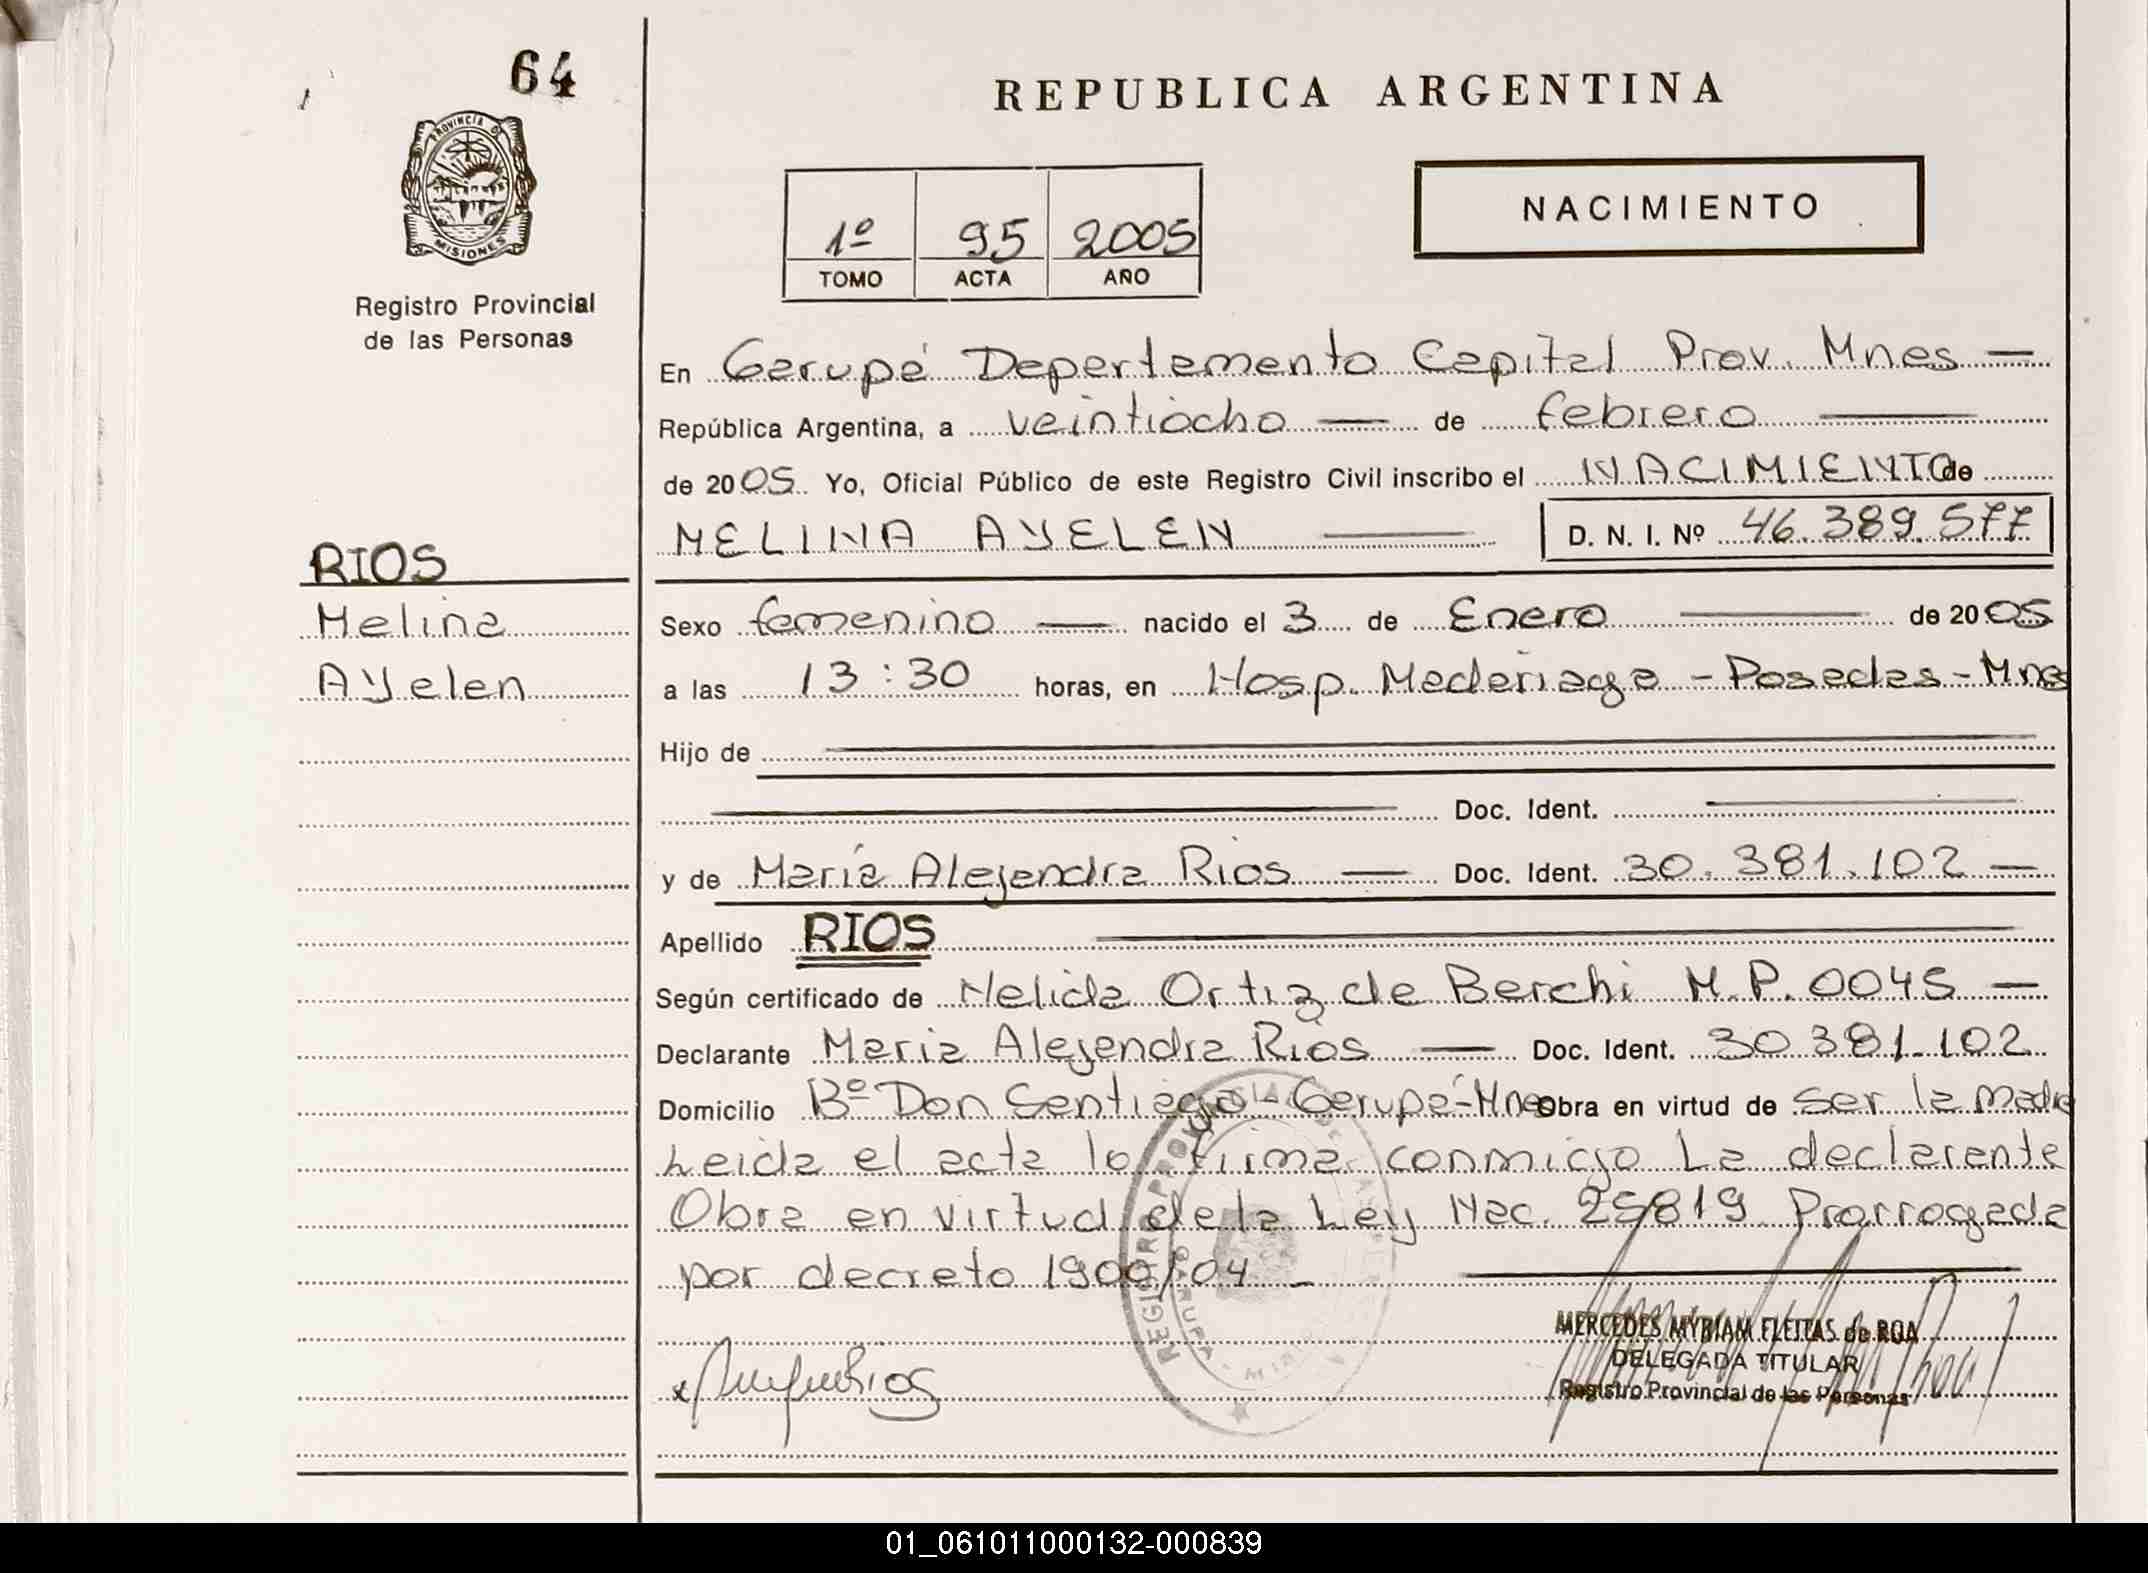 64
REPUBLICA ARGENTINA
PROVINCIA DE
MISIONES
Registro Provincial
de las Personas
1º 95 2005
TOMO ACTA AÑO
NACIMIENTO
En Garupá Departamento Capital Prov. Mnes
República Argentina, a veintiocho de febrero
de 2005. Yo, Oficial Público de este Registro Civil inscribo el NACIMIENTO de
MELINA AYELEN D. N. I. Nº 46.389.577
RIOS
Melina
Ayelen
Sexo femenino nacido el 3 de Enero de 2005
a las 13:30 horas, en Hosp. Madariaga - Posadas - Mnes
Hijo de
Doc. Ident.
y de María Alejandra Rios Doc. Ident. 30.381.102
Apellido RIOS
Según certificado de Nelida Ortiz de Berchi M.P. 0045
Declarante Maria Alejandra Rios Doc. Ident. 30381.102
Domicilio Bº Don Santiago Garupá-Mnes Obra en virtud de ser la madre
Leida el acta la firma conmigo La declarante
Obra en virtud de la Ley Nac. 25819 Prorrogada
por decreto 1900/04
MERCEDES MYRIAM FLEITAS de ROA
DELEGADA TITULAR
Registro Provincial de las Personas
01_061011000132-000839